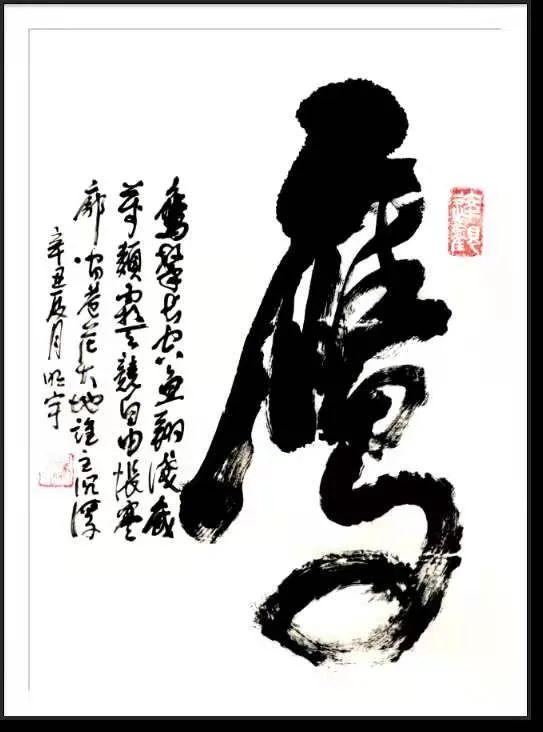 鷹
達觀
鷹擊长空魚翔浅底
萬類霜天競自由悵寥
廓问蒼茫大地誰主沉浮
辛丑月